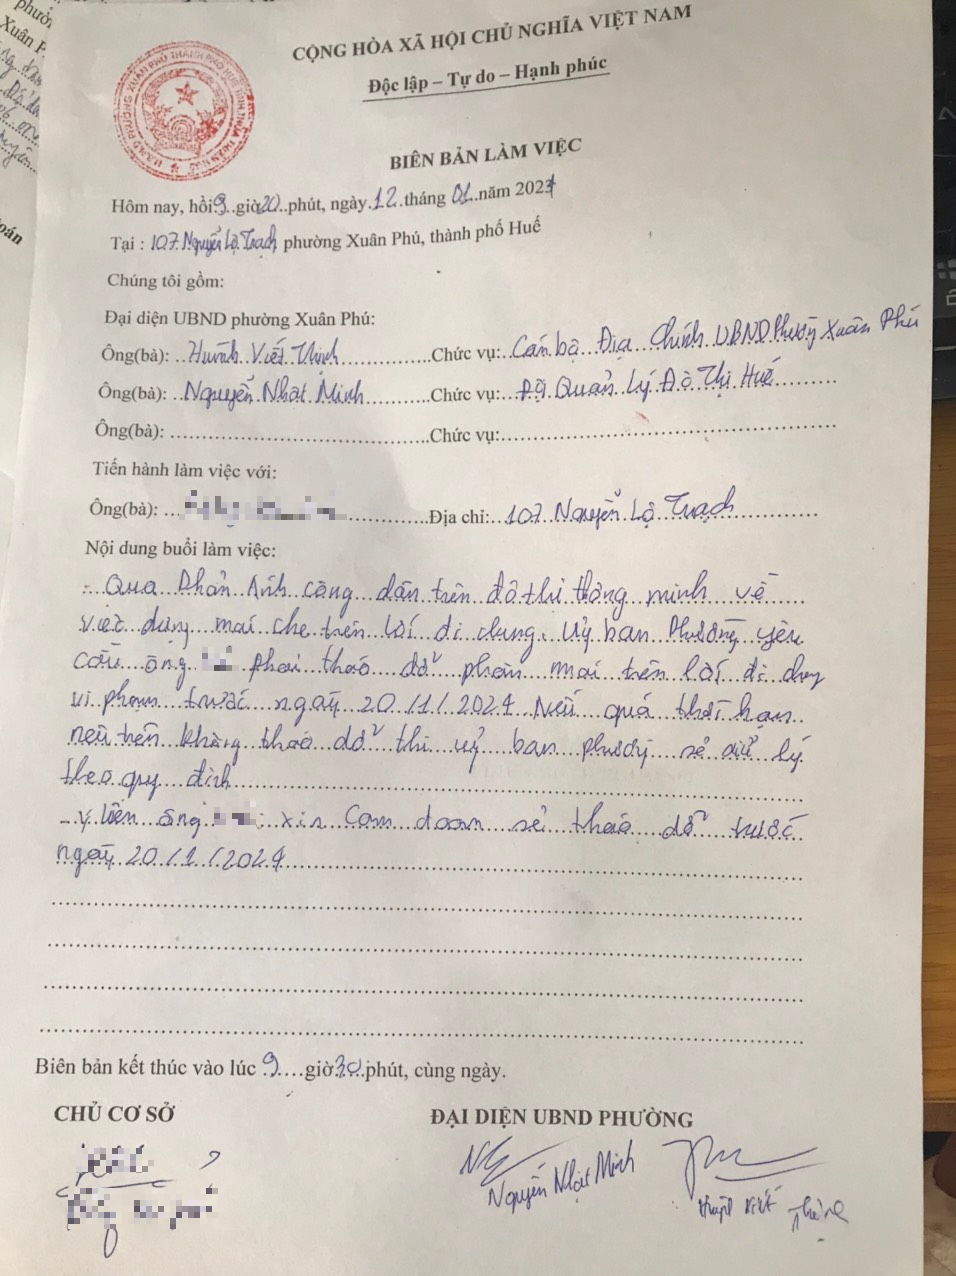 phưở
Xuân P.
oán
CỘNG HÒA XÃ HỘI CHỦ NGHĨA VIỆT NAM
Độc lập – Tự do – Hạnh phúc
BIÊN BẢN LÀM VIỆC
Hôm nay, hồi 9 giờ 20 phút, ngày 12 tháng 01 năm 2024
Tại : 107 Nguyễn Lộ Trạch phường Xuân Phú, thành phố Huế
Chúng tôi gồm:
Đại diện UBND phường Xuân Phú:
Ông(bà): Huỳnh Viết Thịnh Chức vụ: Cán bộ Địa Chính UBND Phường Xuân Phú
Ông(bà): Nguyễn Nhật Minh Chức vụ: Đội Quản Lý Đô Thị Huế
Ông(bà): Chức vụ:
Tiến hành làm việc với:
Ông(bà): Địa chỉ: 107 Nguyễn Lộ Trạch
Nội dung buổi làm việc:
- Qua Phản Ánh công dân trên đô thị thông minh về
việc dựng mái che trên lối đi chung. Uỷ ban Phường yêu
cầu ông phải tháo dỡ phần mái trên lối đi chung
vi phạm trước ngày 20/1/2024 Nếu quá thời hạn
nêu trên không tháo dỡ thì uỷ ban phường sẽ xử lý
theo quy định
- ý kiến ông xin cam đoan sẽ tháo dỡ trước
ngày 20/1/2024
Biên bản kết thúc vào lúc 9 giờ 30 phút, cùng ngày.
CHỦ CƠ SỞ ĐẠI DIỆN UBND PHƯỜNG
Nguyễn Nhật Minh Huỳnh Viết Thịnh